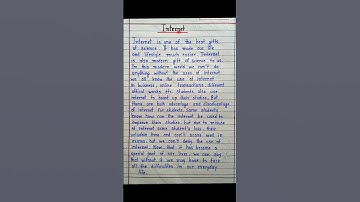 Internet
Internet is one of the best gifts
of science. It has made our life
and lifestyle much easier. Internet
is also modern gift of science to us.
In this modern world we can't do
anything without the uses of internet.
We all know the use of internet
in business, online transactions, different
official works etc. Students also use
internet to boost up their studies. But
there are both advantage and disadvantage
of internet for students. Some students
know how can the internet be used to
improve their studies, but due to misuse
of internet some students loss their
valuable time and can't score well in
exams. but we can't deny the use of
internet. Now, that it has become a
special part of our lives. we can say
that without it we may have to face
all the difficulties in our everyday
life.